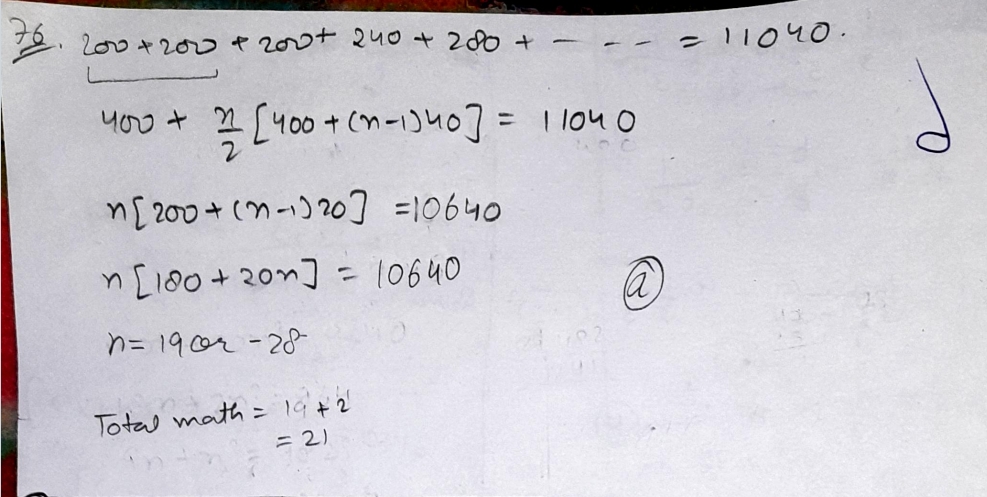 76. 200 + 200 + 200 + 240 + 280 + - - - - = 11040.
400 + n/2 [400 + (n-1)40] = 11040
n[200 + (n-1)20] = 10640
n[180 + 20n] = 10640
(a)
n = 19 or -28
Total math = 19 + 2
= 21